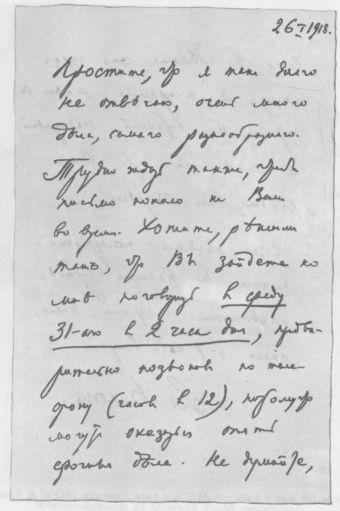 26 I 1918.
Простите, что я так долго
не отвѣчаю, очень много
дѣла, самаго разнообразнаго.
Трудно ждать также, чтобъ
письмо попало къ Вамъ
во время. Хотите, рѣшимъ
такъ, что Вы зайдете ко
мнѣ поговорить въ среду
31-ого в 2 часа дня, предва-
рительно позвонивъ по теле-
фону (часов в 12), потому что
могутъ оказаться опять
срочныя дѣла. Не думайте,